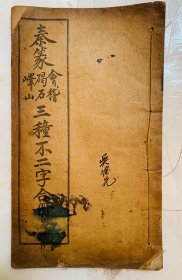 秦篆會稽碣石嶧山三種不二字合